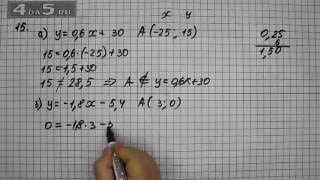 4DA5.RU
x y
15. а) y = 0,6x + 30 A(-25, 15)
15 = 0,6·(-25) + 30
15 = 1,5 + 30
15 ≠ 28,5 ⇒ A ∉ y = 0,6x + 30
б) y = -1,8x - 5,4 A(3; 0)
0 = -1,8·3 - 5
0,25
6
1,50